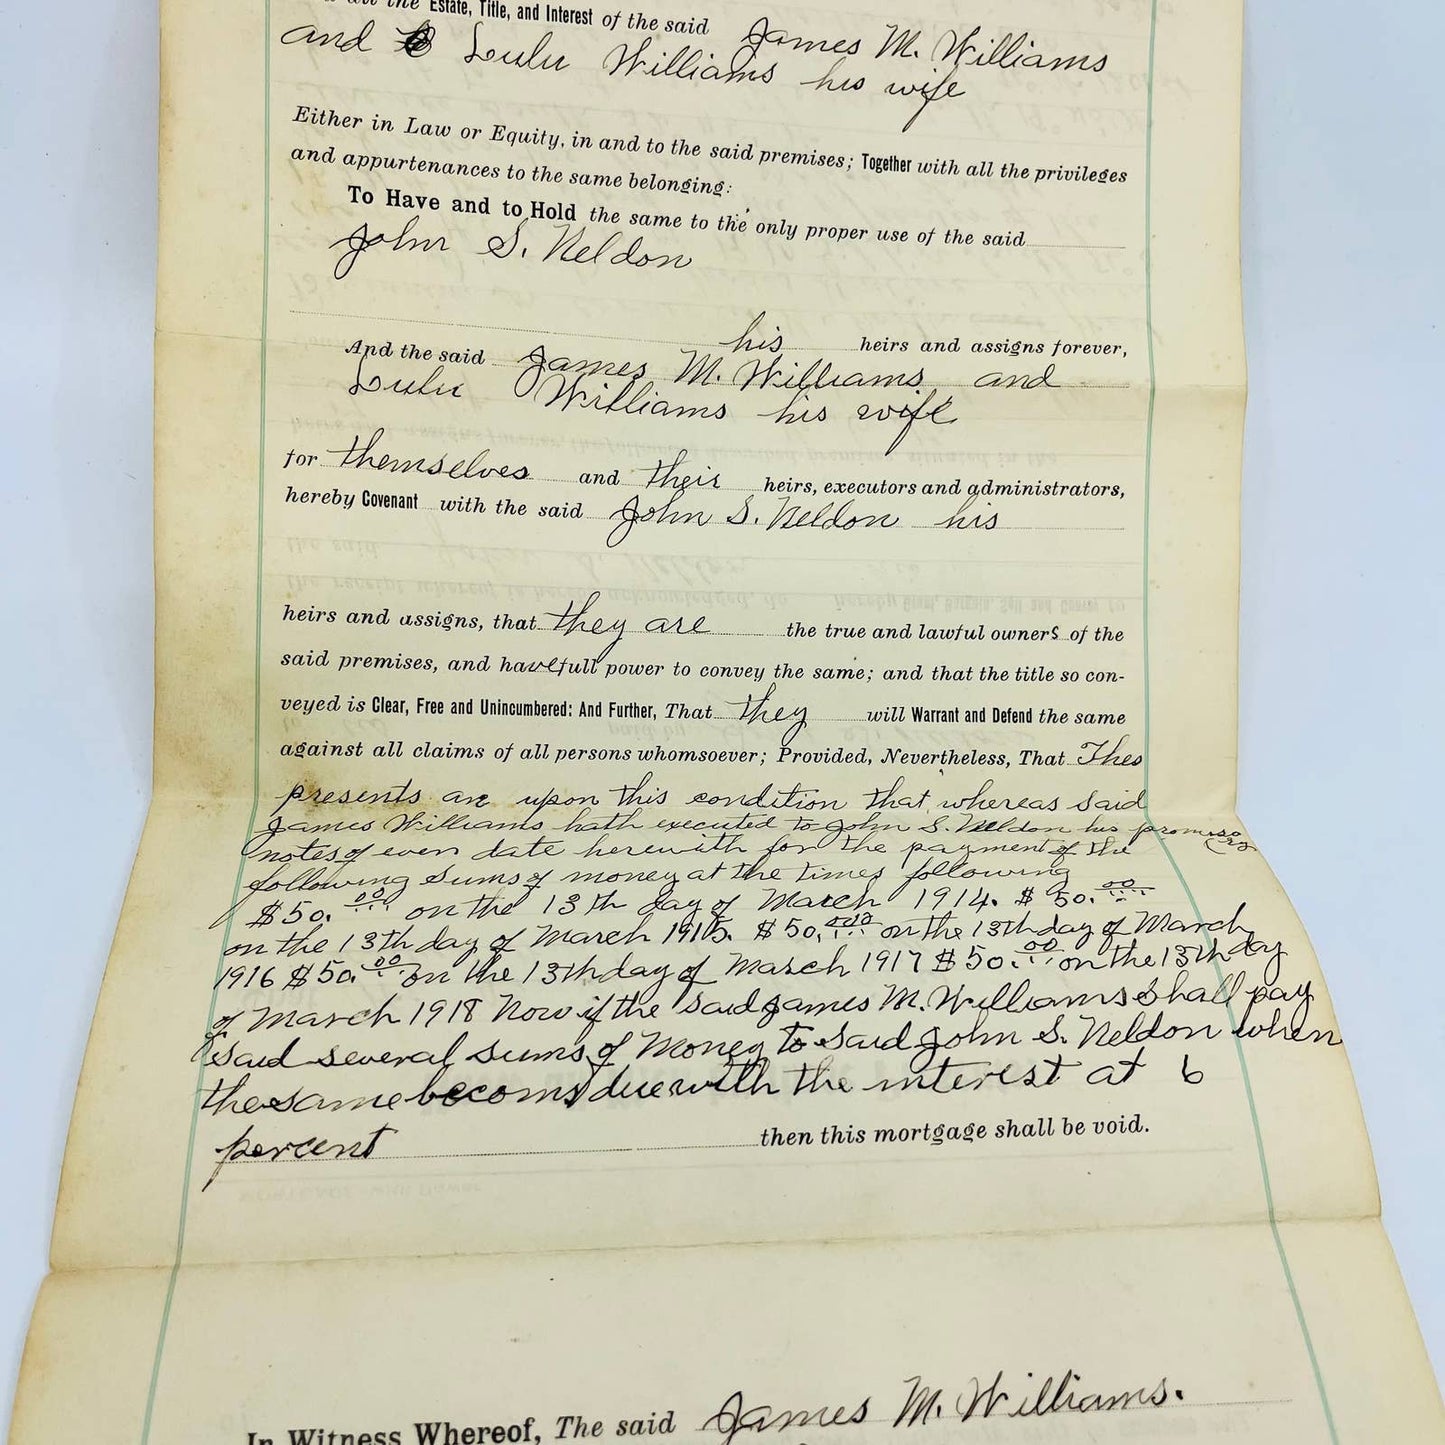 all the Estate, Title, and Interest of the said James M. Williams
and Lulu Williams his wife
Either in Law or Equity, in and to the said premises; Together with all the privileges
and appurtenances to the same belonging:
To Have and to Hold the same to the only proper use of the said
John S. Neldon
his heirs and assigns forever,
And the said James M. Williams and
Lulu Williams his wife
for themselves and their heirs, executors and administrators,
hereby Covenant with the said John S. Neldon his
heirs and assigns, that they are the true and lawful owners of the
said premises, and have full power to convey the same; and that the title so con-
veyed is Clear, Free and Unincumbered: And Further, That they will Warrant and Defend the same
against all claims of all persons whomsoever; Provided, Nevertheless, That Thes
presents are upon this condition that whereas said
James Williams hath executed to John S. Neldon his promissory
notes of even date herewith for the payment of the
following sums of money at the times following
$50.00 on the 13th day of March 1914. $50.00
on the 13th day of March 1915. $50.00 on the 13th day of March
1916 $50.00 on the 13th day of March 1917 $50.00 on the 13th day
of March 1918 Now if the said James M. Williams shall pay
said several sums of Money to said John S. Neldon when
the same becoms due with the interest at 6
percent then this mortgage shall be void.
In Witness Whereof, The said James M. Williams.